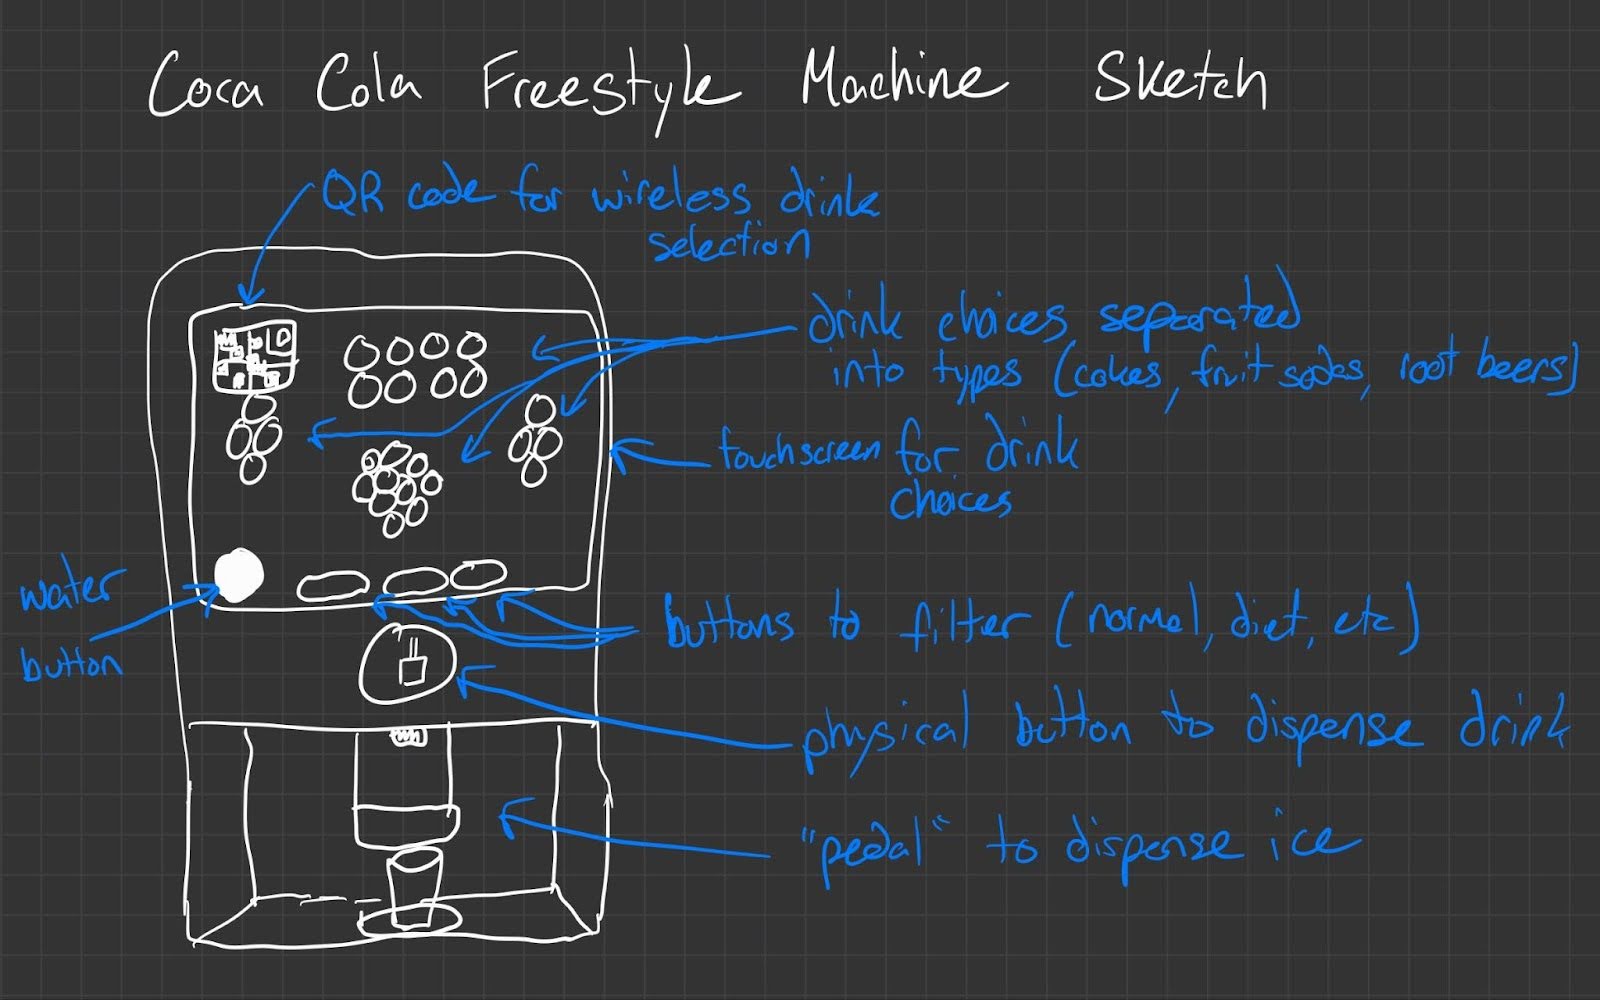 Coca Cola Freestyle Machine Sketch
QR code for wireless drink
selection
drink choices separated
into types (cokes, fruit sodas, root beers)
touchscreen for drink
choices
water
button
buttons to filter (normal, diet, etc)
physical button to dispense drink
"pedal" to dispense ice